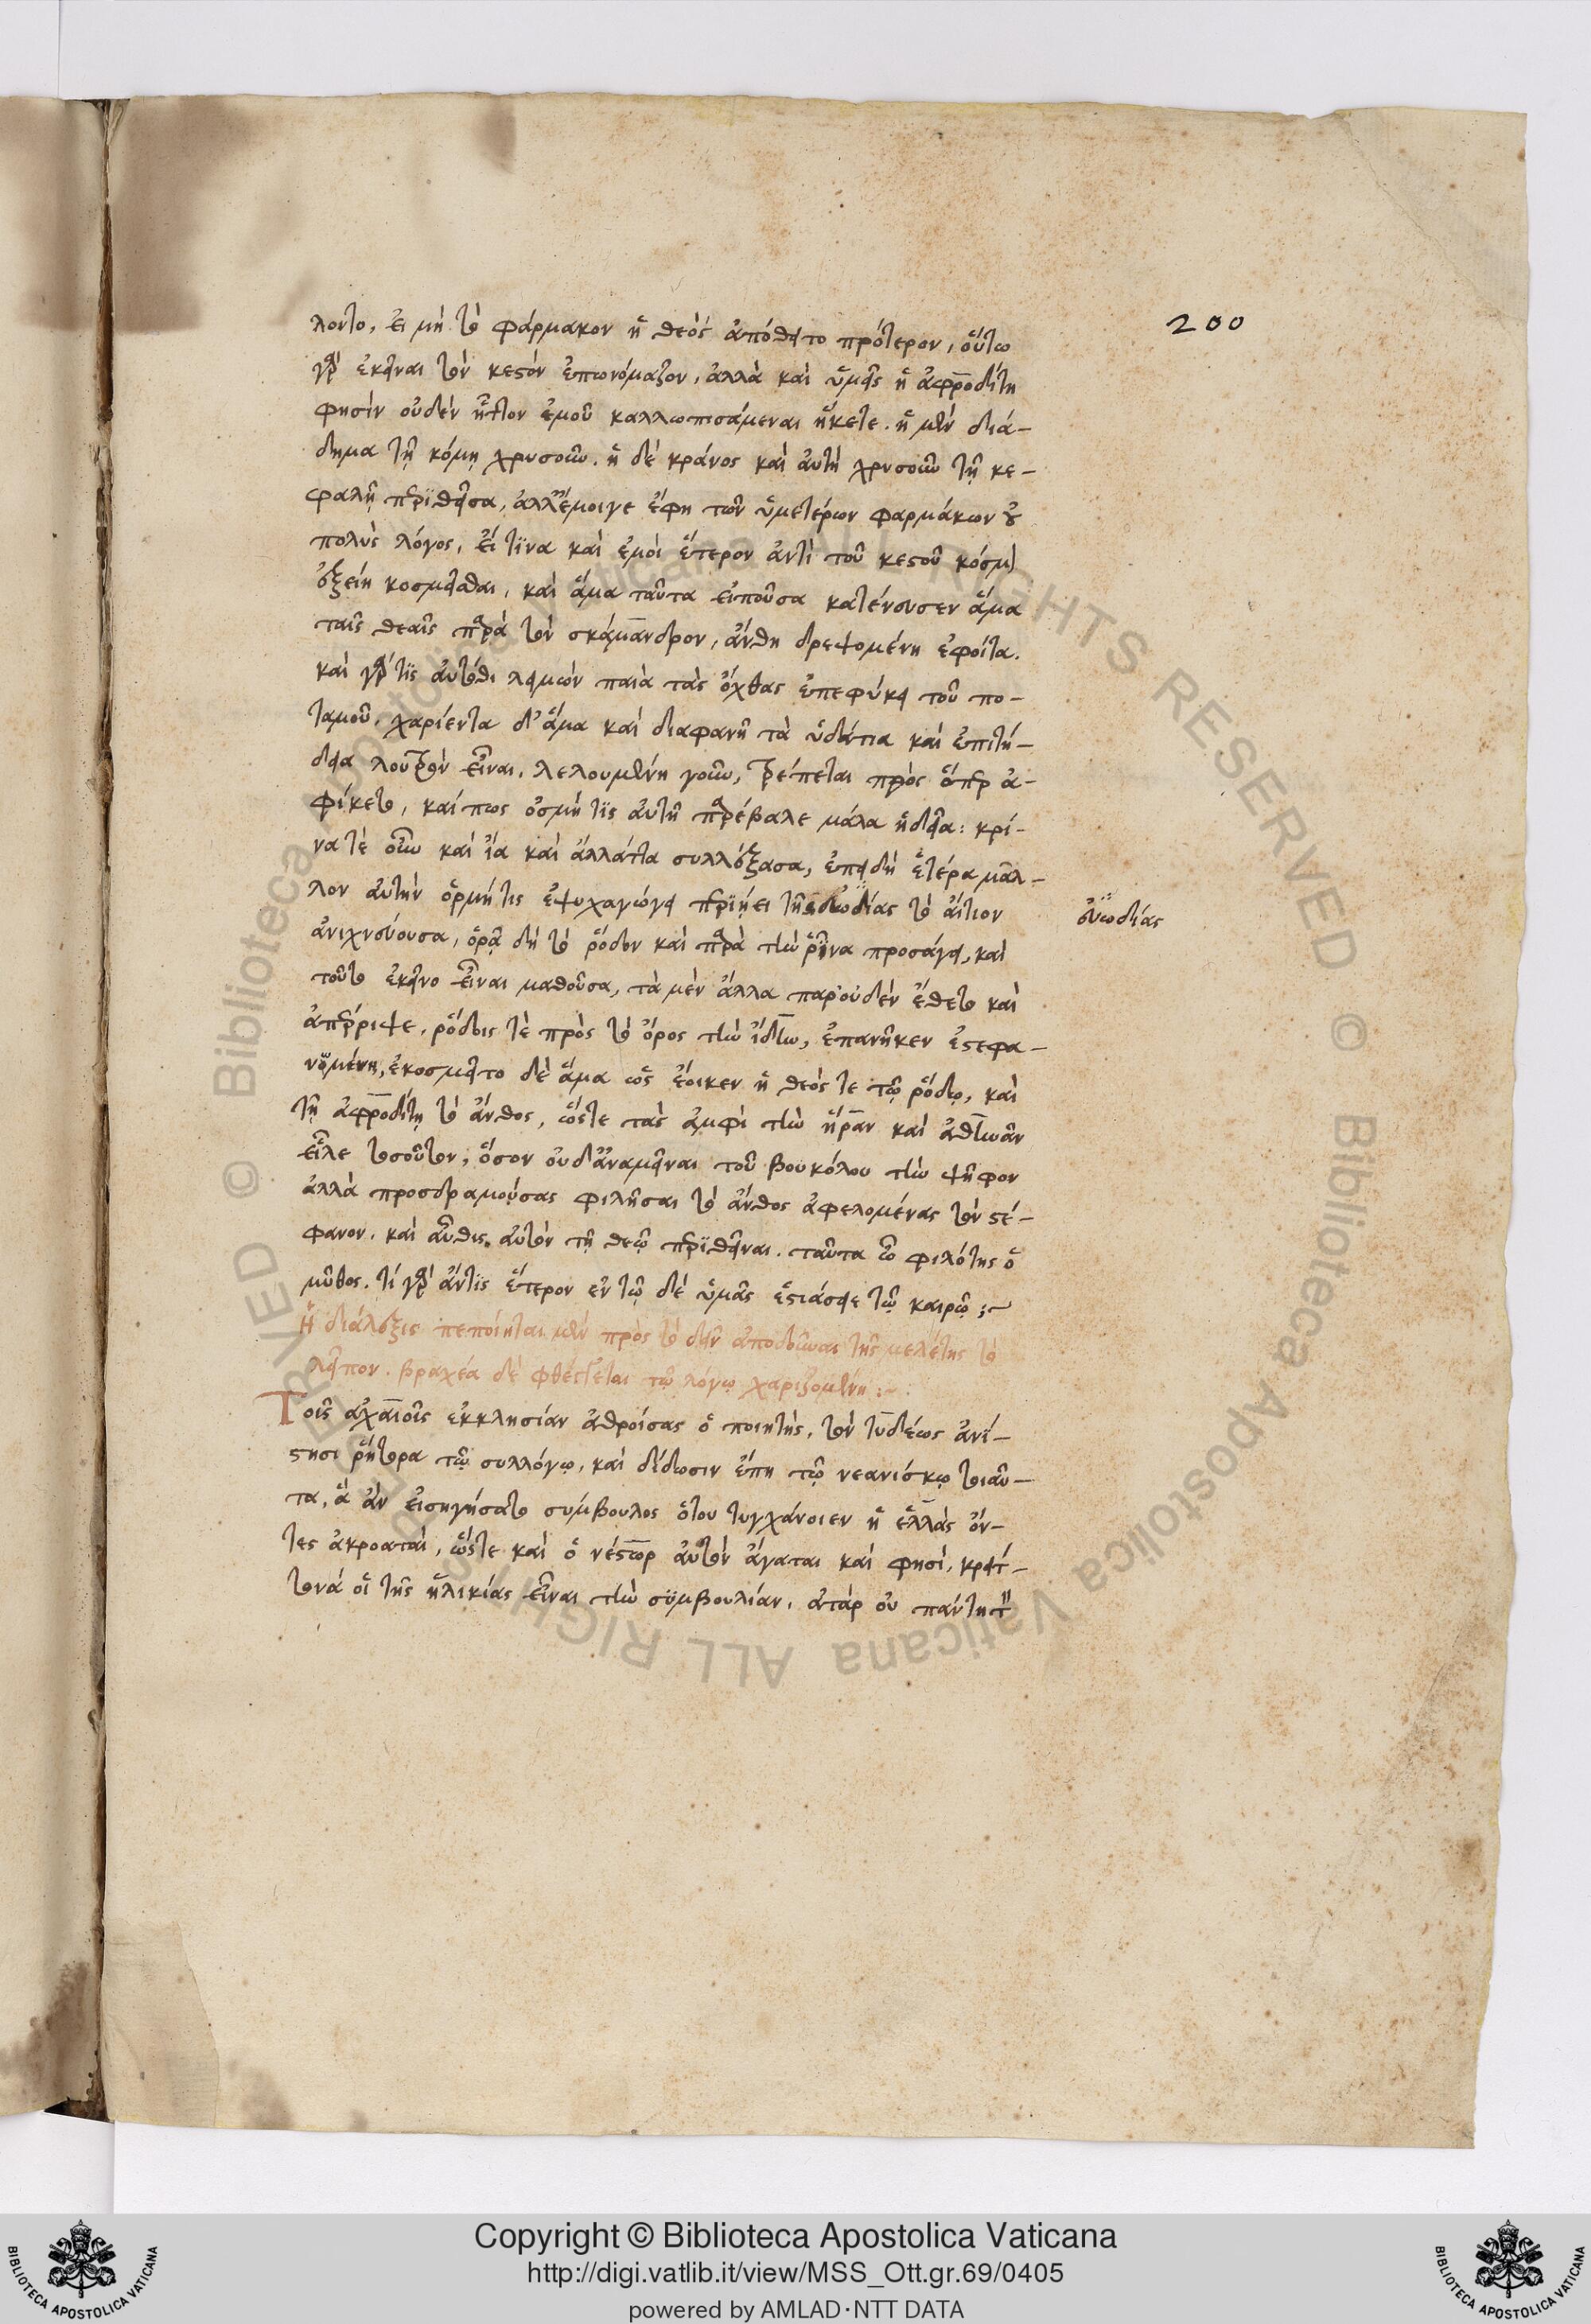 200
λοντο, εἰ μὴ τὸ φάρμακον ἡ θεὸς ἀπόθειτο πρότερον, οὕτω
γὰρ ἐκεῖναι τὸν κεστὸν ἐπωνόμαζον, ἀλλὰ καὶ ὑμεῖς ἡ ἀφροδίτη
φησὶν οὐδὲν ἧττον ἐμοῦ καλλωπισάμεναι ἥκετε. ἡ μὲν διά-
δημα τῇ κόμῃ χρυσοῦν. ἡ δὲ κράνος καὶ αὐτὴ χρυσοῦν τῇ κε-
φαλῇ περιθεῖσα, ἀλλ' ἔμοιγε ἔφη τῶν ὑμετέρων φαρμάκων οὐ
πολὺς λόγος, εἴ τινα καὶ ἐμοὶ ἕτερον ἀντὶ τοῦ κεστοῦ κόσμον
ἐξείη κοσμεῖσθαι, καὶ ἅμα ταῦτα εἰποῦσα κατένευσεν ἅμα
ταῖς θεαῖς παρὰ τὸν σκάμανδρον, ἄνθη δρεψομένη ἐφοίτα.
καὶ γάρ τις αὐτόθι λειμὼν παρὰ τὰς ὄχθας ἐπεφύκει τοῦ πο-
ταμοῦ, χαρίεντα δ' ἅμα καὶ διαφανῆ τὰ ὑδάτια καὶ ἐπιτή-
δεια λουτρὸν εἶναι, λελουμένη γοῦν, τρέπεται πρὸς ὅπερ ἀ-
φίκετο, καί πως ὀσμή τις αὐτῇ παρέβαλε μάλα ἡδεῖα: κρί-
να τὲ οὖν καὶ ἴα καὶ ἀλλάττα συλλέξασα, ἐπειδὴ ἑτέρα μᾶλ-
λον αὐτὴν ὁρμή τις ἐψυχαγώγει περιῄει τῆς εὐωδίας τὸ αἴτιον
εὐωδίας
ἀνιχνεύουσα, ὁρᾷ δὴ τὸ ῥόδον καὶ παρὰ τὴν ῥῖνα προσάγει, καὶ
τοῦτο ἐκεῖνο εἶναι μαθοῦσα, τὰ μὲν ἄλλα παρ' οὐδὲν ἔθετο καὶ
ἀπέρριψε, ῥόδοις τὲ πρὸς τὸ ὄρος τὴν ἴδην, ἐπανῆκεν ἐστεφα-
νωμένη, ἐκοσμεῖτο δὲ ἅμα ὡς ἔοικεν ἡ θεός τε τῷ ῥόδῳ, καὶ
τῇ ἀφροδίτῃ τὸ ἄνθος, ὥστε τὰς ἀμφὶ τὴν ἥραν καὶ ἀθηνᾶν
εἷλε τοσοῦτον, ὅσον οὐδ' ἀναμεῖναι τοῦ βουκόλου τὴν ψῆφον
ἀλλὰ προσδραμούσας φιλῆσαι τὸ ἄνθος ἀφελομένας τὸν στέ-
φανον, καὶ αὖθις αὐτὸν τῇ θεῷ περιθεῖναι. ταῦτα ὦ φιλότης ὁ
μῦθος. τί γὰρ ἄν τις ἕτερον ἐν τῷ δὲ ὑμᾶς ἑστιάσειε τῷ καιρῷ :~
Ἡ διάλεξις πεποίηται μὲν πρὸς τὸ δεῖν ἀποδοῦναι τῆς μελέτης τὸ
λεῖπον. βραχέα δὲ φθέγγεται τῷ λόγῳ χαριζομένη :~
Τοῖς ἀχαιοῖς ἐκκλησίαν ἀθροίσας ὁ ποιητής, τὸν τυδέως ἀνί-
στησι ῥήτορα τῷ συλλόγῳ, καὶ δίδωσιν ἔπη τῷ νεανίσκῳ τοιαῦ-
τα, ἃ ἂν εἰσηγήσατο σύμβουλος ὅτου τυγχάνοιεν ἡ ἑλλὰς ὄν-
τες ἀκροαταί, ὥστε καὶ ὁ νέστωρ αὐτὸν ἄγαται καὶ φησί, κρείτ-
τονά οἱ τῆς ἡλικίας εἶναι τὴν συμβουλίαν, ἀτὰρ οὐ πάντη